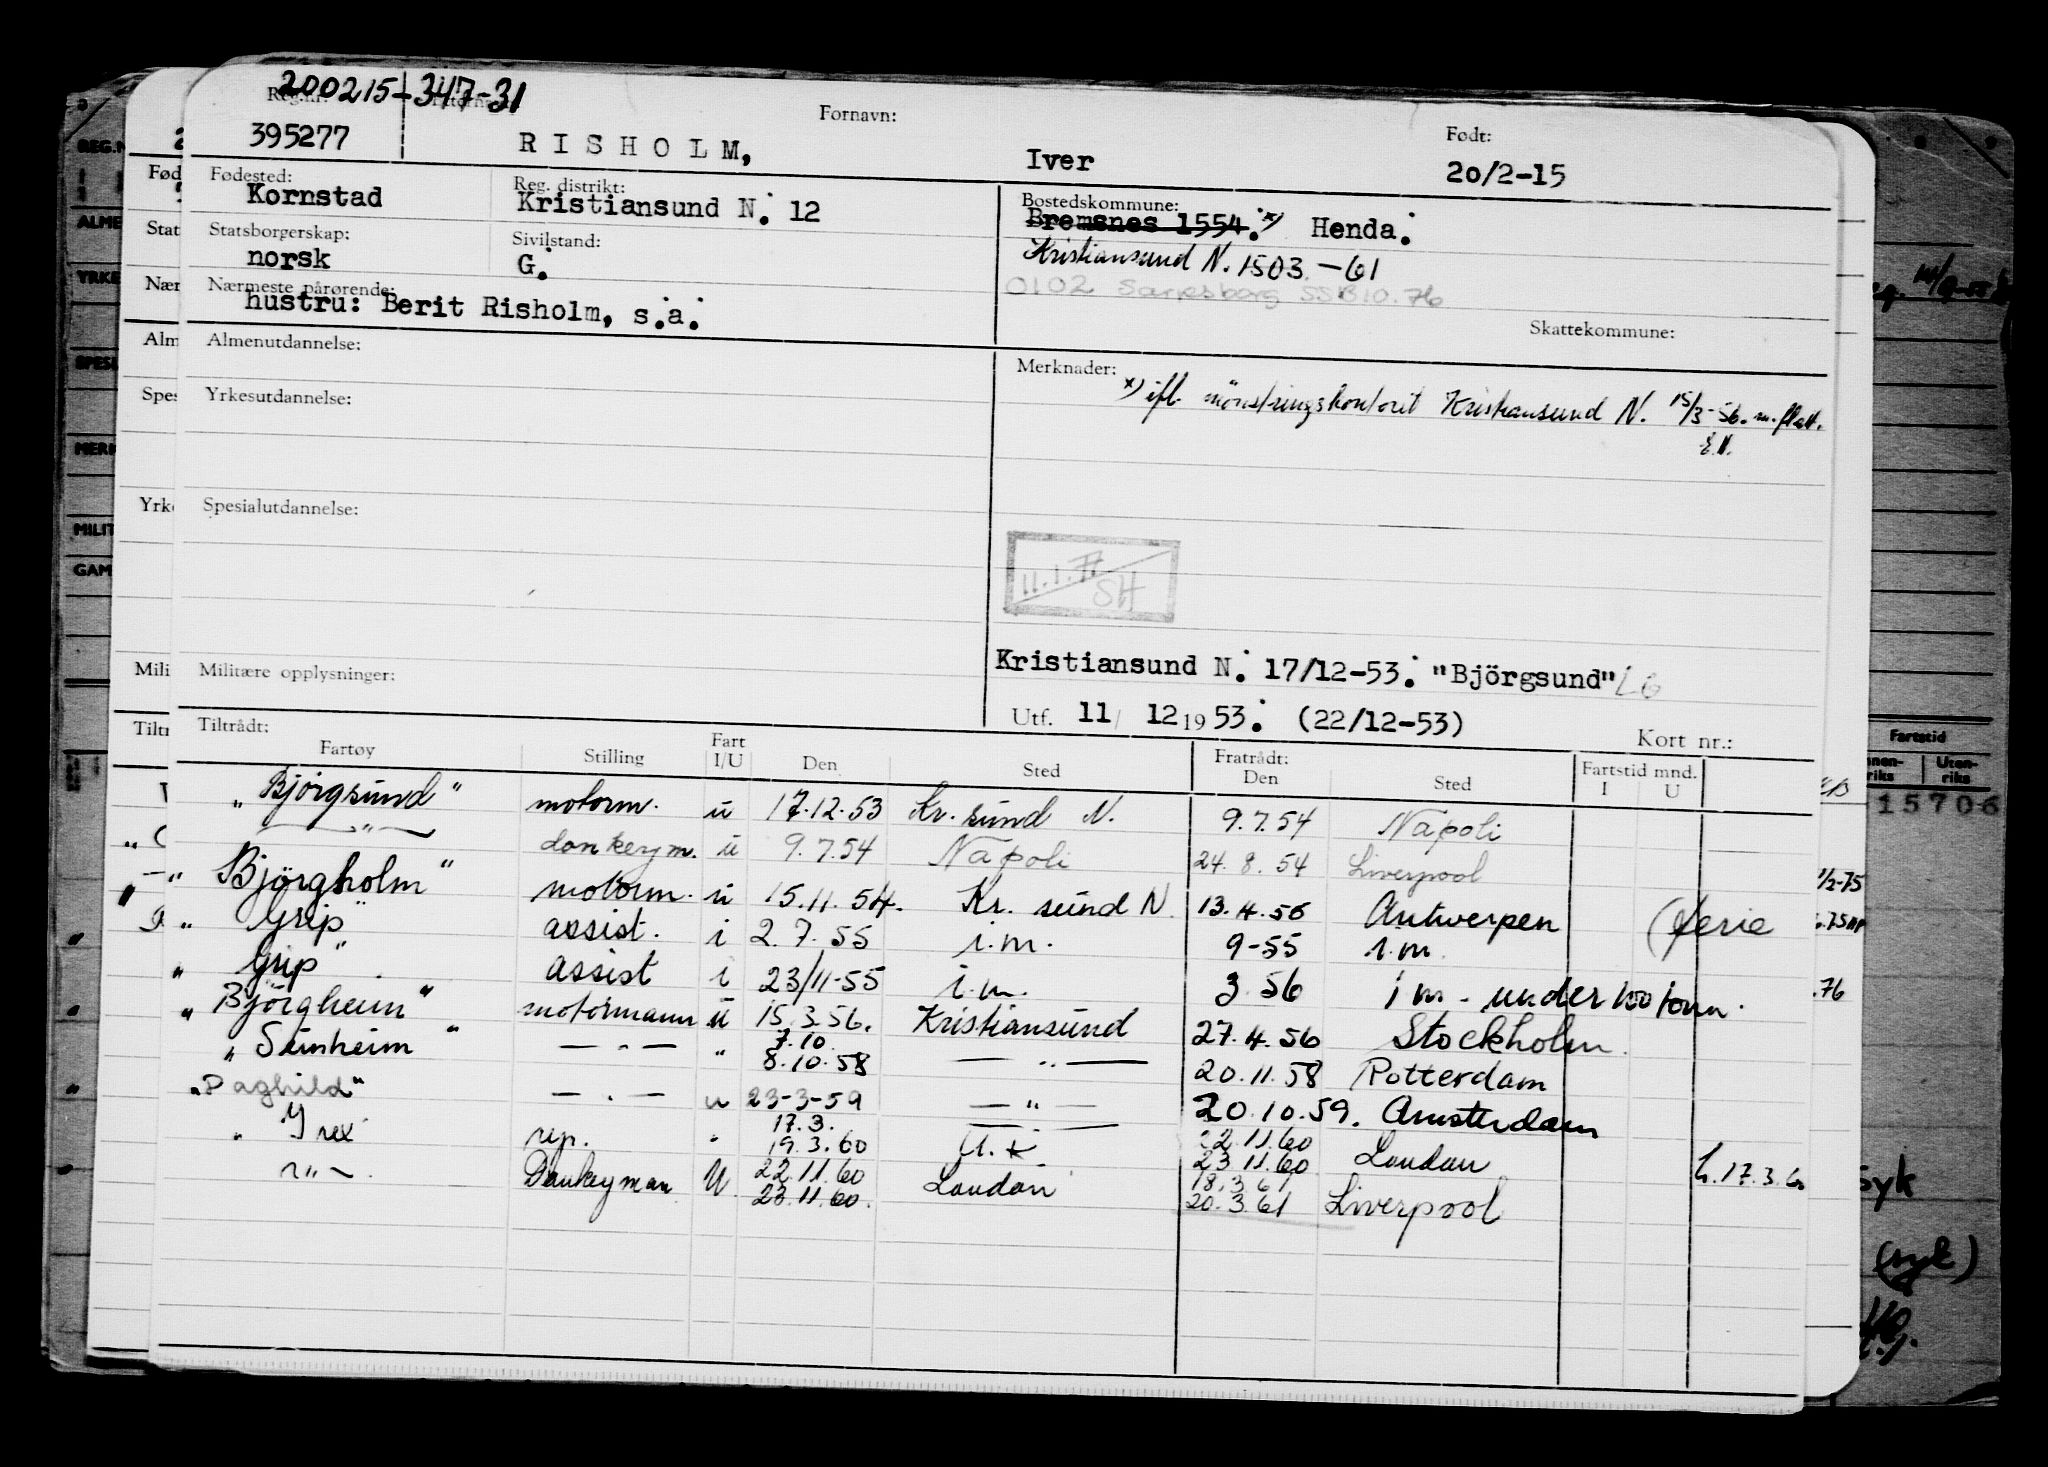 200215-347-31
Reg.nr. Fornavn: Født:
395277 RISHOLM, Iver 20/2-15
Fødested: Reg. distrikt: Bostedskommune:
Kornstad Kristiansund N. 12 Bremsnes 1554. x) Henda.
Statsborgerskap: Sivilstand: Kristiansund N. 1503 -61
norsk G. 0102 Sarpsborg SSB 10.76
Nærmeste pårørende:
hustru: Berit Risholm, s.a.
Skattekommune:
Almenutdannelse: Merknader:
x) ifl. mönstringskontoret Kristiansund N. 15/3-56. m. flatt.
E.N.
Yrkesutdannelse:
Spesialutdannelse:
11.1.77 SH
Militære opplysninger: Kristiansund N. 17/12-53. "Björgsund" LG
Utf. 11/ 12 1953. (22/12-53)
Tiltrådt: Kort nr.:
Fartøy Stilling Fart I/U Den Sted Fratrådt: Den Sted Fartstid mnd. I U
"Björgsund" motorm. u 17.12.53 Kr.sund N. 9.7.54 Napoli
—"— donkeym. u 9.7.54 Napoli 24.8.54 Liverpool
"Björgholm" motorm. u 15.11.54. Kr.sund N. 13.4.56 Antwerpen (ferie
"Grip" assist. i 2.7.55 i.m. 9-55 i.m.
"Grip" assist i 23/11-55 i.m. 3.56 i m - under 100 tonn.
"Björgheim" motormann u 15.3.56. Kristiansund 27.4.56 Stockholm.
"Sunheim" — " — " 7.10. 8.10.58 — " — 20.11.58 Rotterdam
"Daghild" — " — u 23-3-59 — " — 20.10.59. Amsterdam
" Irex rep. " 17.3. 19.3.60 U.K. 22.11.60 23.11.60 London h.17.3.6
—"— Donkeyman U 22.11.60 23.11.60. London 18.3.61 20.3.61 Liverpool
Fartstid
15706
Syk
(syk)